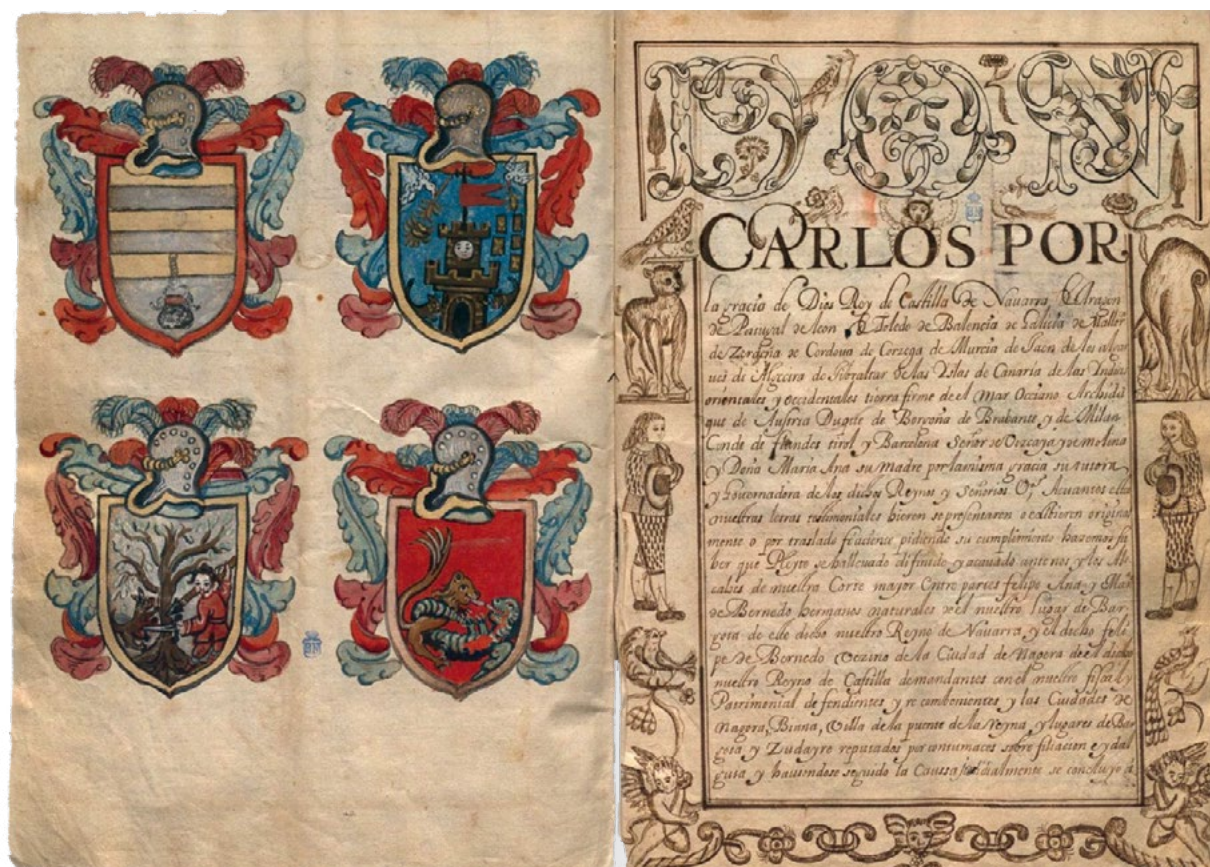 DON
CARLOS POR
la gracia de Dios Rey de Castilla de Navarra de Aragon
de Portugal de leon de Toledo de Balencia de Galicia de Maller
de Zerdeña de Cordova de Corzega de Murcia de Jaen de los algar
ues de Algecira de Gibraltar de las Yslas de Canaria de las Yndias
orientales y occidentales tierra firme de el Mar Occiano Archidu
que de Austria Duque de Borgoña de Brabante y de Milan
Conde de flandes tirol y Barcelona Señor de Vizcaya y de molina
y Doña Maria Ana su madre por la misma gracia su tutora
y Gouernadora de los dichos Reynos y Señorios A quantos estas
nuestras letras testimoniales bieren se presentaren o exiuieren original
mente o por traslado faciente pidiendo su cumplimiento hazemos sa
ber que Pleyto se ha lleuado difinido y acauado ante nos y los Al
caldes de nuestro Corte mayor Entre partes felipe Ana y Mar
de Bernedo hermanos naturales de el nuestro lugar de Bar
gota de este dicho nuestro Reyno de Navarra y el dicho feli
pe de Bernedo Vezino de la Ciudad de Nagera de el dicho
nuestro Reyno de Castilla demandantes con el nuestro fiscal y
Patrimonial defendientes y recombenientes y las Ciudades de
Nagera, Biana, Villa de la puente de la Reyna, y lugares de Bar
gota y Zudayre reputados por contumaces sobre filiacion e ydal
guia y hauiendose seguido la Caussa judialmente se concluyo a